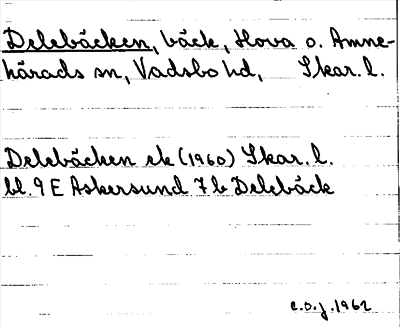 Delebäcken, bäck, Hova o. Amne-
härads sn, Vadsbo hd, Skar. l.
Delebäcken ek (1960) Skar. l.
bl. 9 E Askersund 7 b Delebäck
C.O.J. 1962